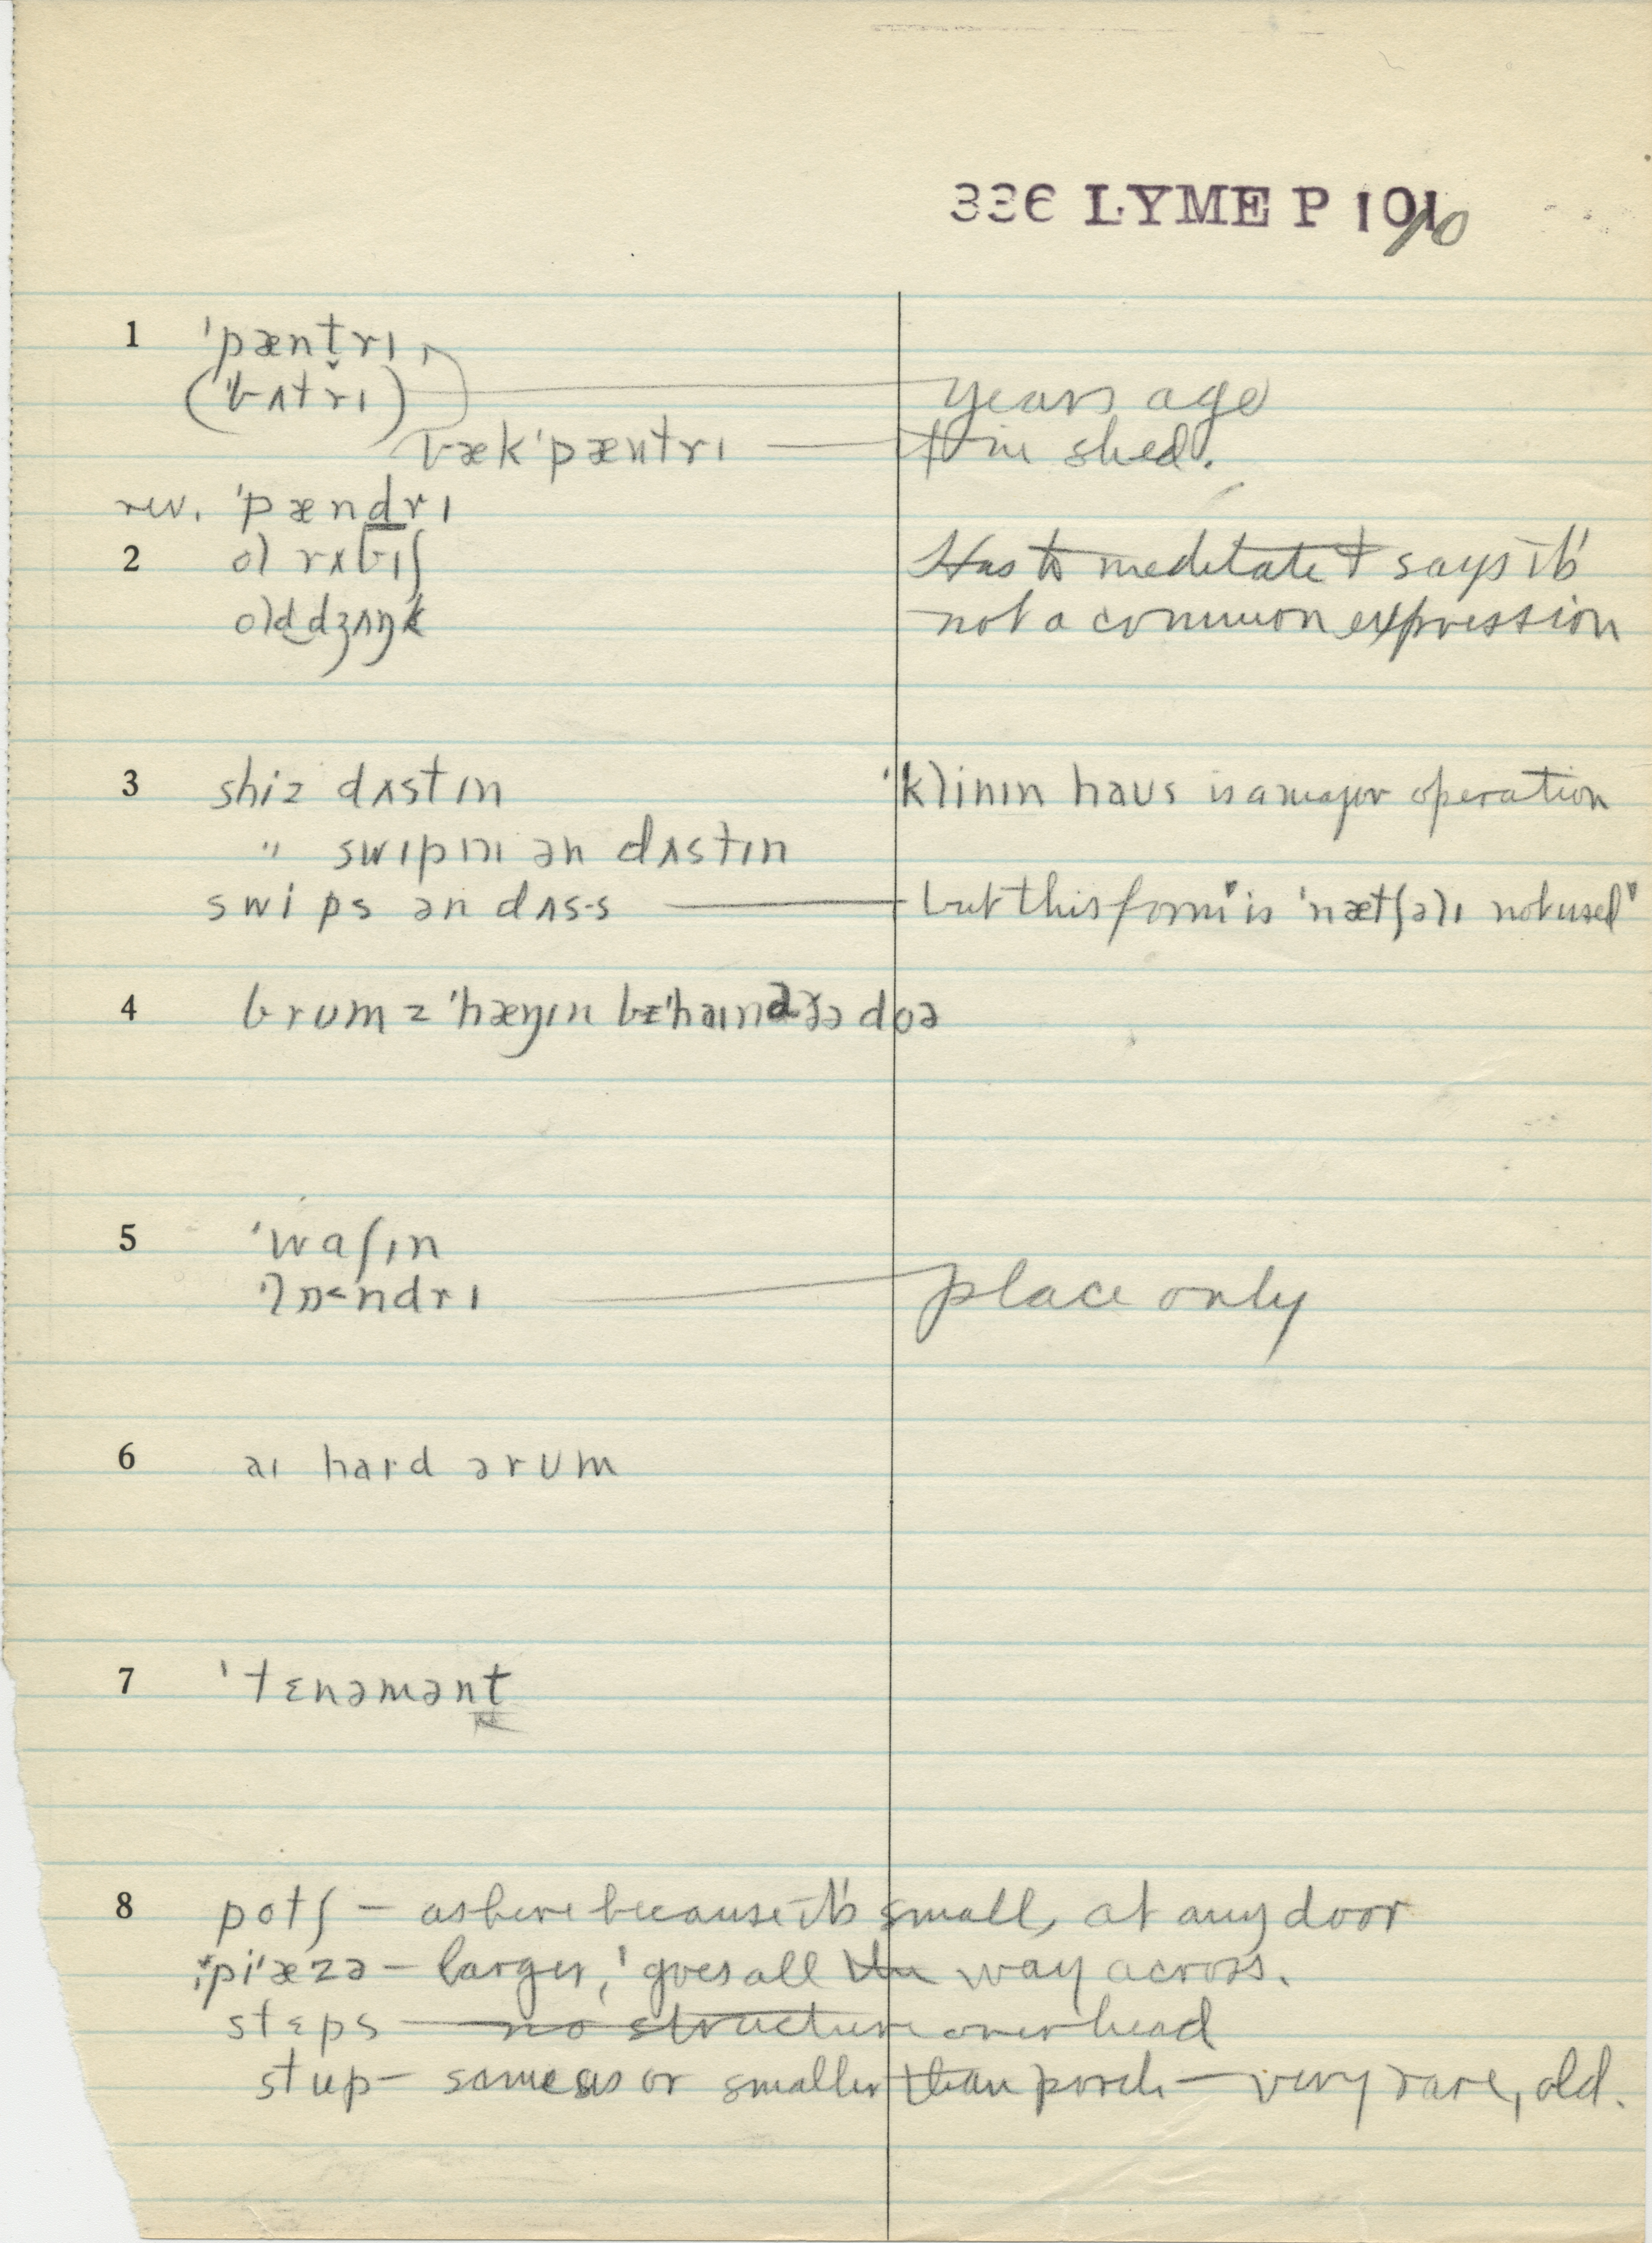 336 LYME P 101
10
1 'pænt̬rɪ,
('bʌtr̆ɪ) years ago
bæk'pæntrɪ — in shed.
rev. 'pændrɪ
2 ol rʌbɪʃ Has to meditate & says it's
old dʒʌŋk not a common expression
3 shiz dʌstɪn 'klinɪn haus is a major operation
" swipɪn ən dʌstɪn
swips ən dʌs·s — but this form is 'nætʃəlɪ not used
4 brumz 'hæŋɪn bɪ'haɪnd ðə doə
5 'waʃɪn
'lɒ<ndrɪ — place only
6 aɪ hard ə rum
7 'tɛnəmənt
8 potʃ — as here because it's small, at any door
pi'æzə — larger, goes all the way across.
stɛps — no structure overhead
stup — same as or smaller than porch — very rare, old.